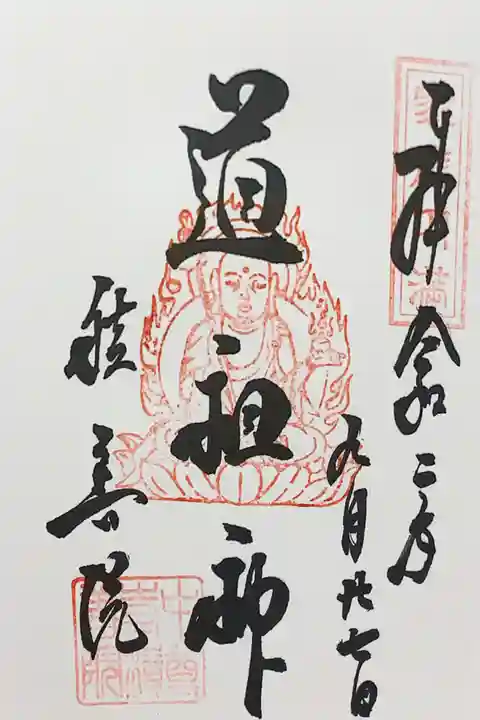 奉拝 令和二年
九月廿七日
道祖神
積善院